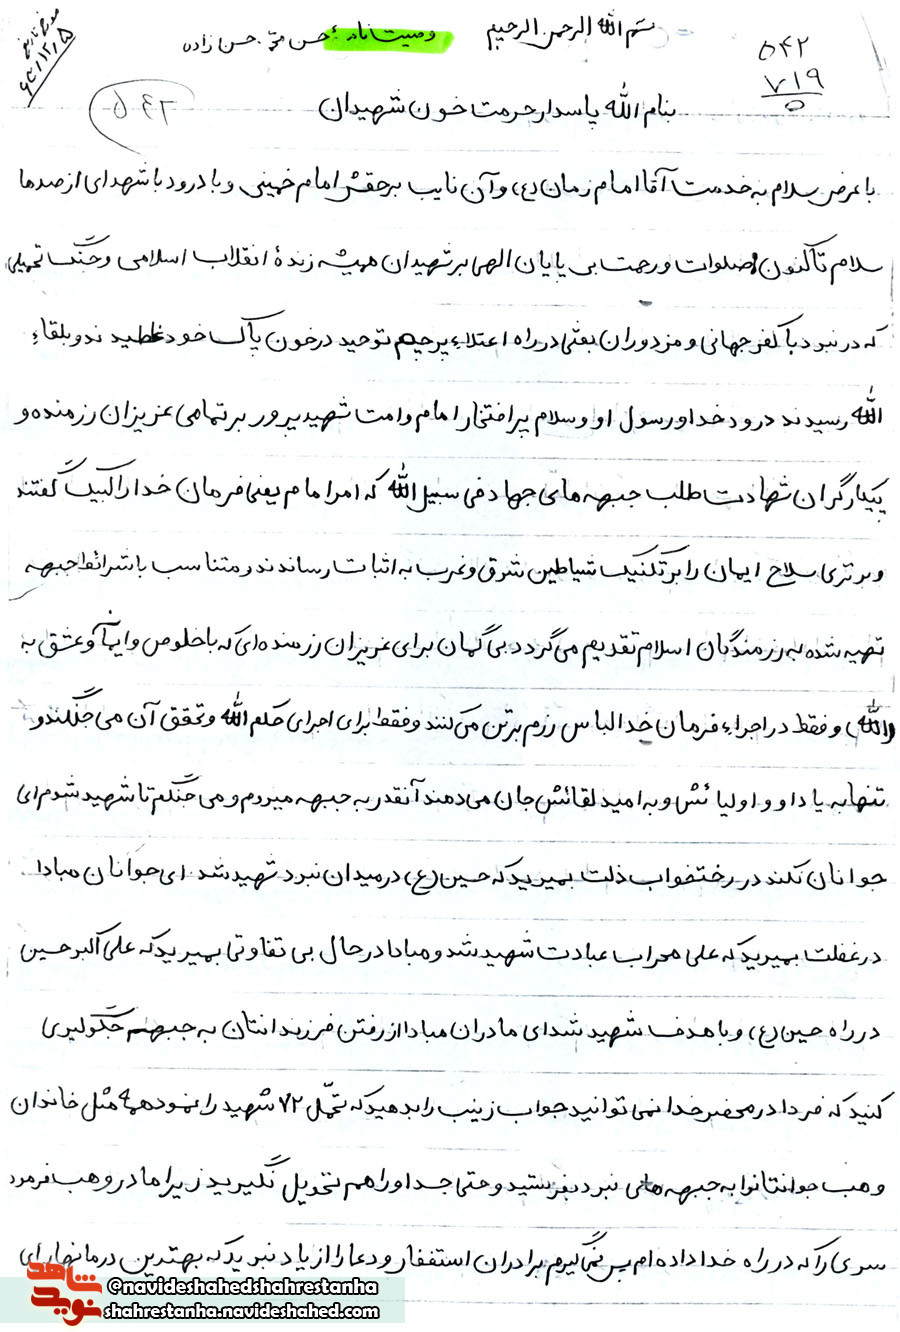 بسم الله الرحمن الرحیم
وصیت نامه حسن محمد حسن زاده
۵۴۲
۷۱۹
۵۴۲
بنام الله پاسدار حرمت خون شهیدان
با عرض سلام به خدمت آقا امام زمان (ع) و آن نایب بر حقش امام خمینی و با درود با شهدای از صدها
سلام تا کنون و صلوات و رحمت بی پایان الهی بر شهیدان همیشه زندهٔ انقلاب اسلامی و جنگ تحمیلی
که در نبرد با کفر جهانی و مزدوران بعثی در راه اعتلاء پرچم توحید در خون پاک خود غلطیدند و بلقاء
الله رسیدند درود خدا و رسول او و سلام پر افتخار امام و امت شهید پرور بر تمامی عزیزان رزمنده و
پیکارگران شهادت طلب جبهه های جهاد فی سبیل الله که امر امام یعنی فرمان خدا را لبیک گفتند
و برتری سلاح ایمان را بر تکنیک شیاطین شرق و غرب به اثبات رساندند و متناسب با شرائط جبهه
تهیه شده به رزمندگان اسلام تقدیم می گردد بی گمان برای عزیزان رزمنده ای که با خلوص و ایمان و عشق به
الله و فقط در اجراء فرمان خدا لباس رزم بر تن می کنند و فقط برای اجرای حکم الله و تحقق آن می جنگند و
تنها به یاد او و اولیائش و به امید لقائش جان می دهند آنقدر به جبهه میروم و می جنگم تا شهید شوم ای
جوانان نکند در رختخواب ذلت بمیرید که حسین (ع) در میدان نبرد شهید شد ای جوانان مبادا
در غفلت بمیرید که علی محراب عبادت شهید شد و مبادا در حال بی تفاوتی بمیرید که علی اکبر حسین
در راه حسین (ع) و با هدف شهید شد ای مادران مبادا از رفتن فرزندانتان به جبهه جلوگیری
کنید که فردا در محضر خدا نمی توانید جواب زینب را بدهید که تحمّل ۷۲ شهید را نمود همه مثل خاندان
وهب جوانتانرا به جبهه های نبرد بفرستید و حتی جسد او را هم تحویل نگیرید زیرا مادر وهب فرمود
سری را که در راه خدا داده ام پس نمی گیرم برادران استغفار و دعا را از یاد نبرید که بهترین درمانها برای
شاهد
نوید
@navideshahedshahrestanha
shahrestanha.navideshahed.com